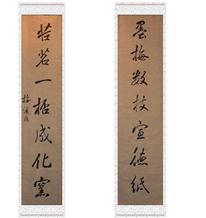 墨梅数枝宣德纸
苦茗一瓯成化窑